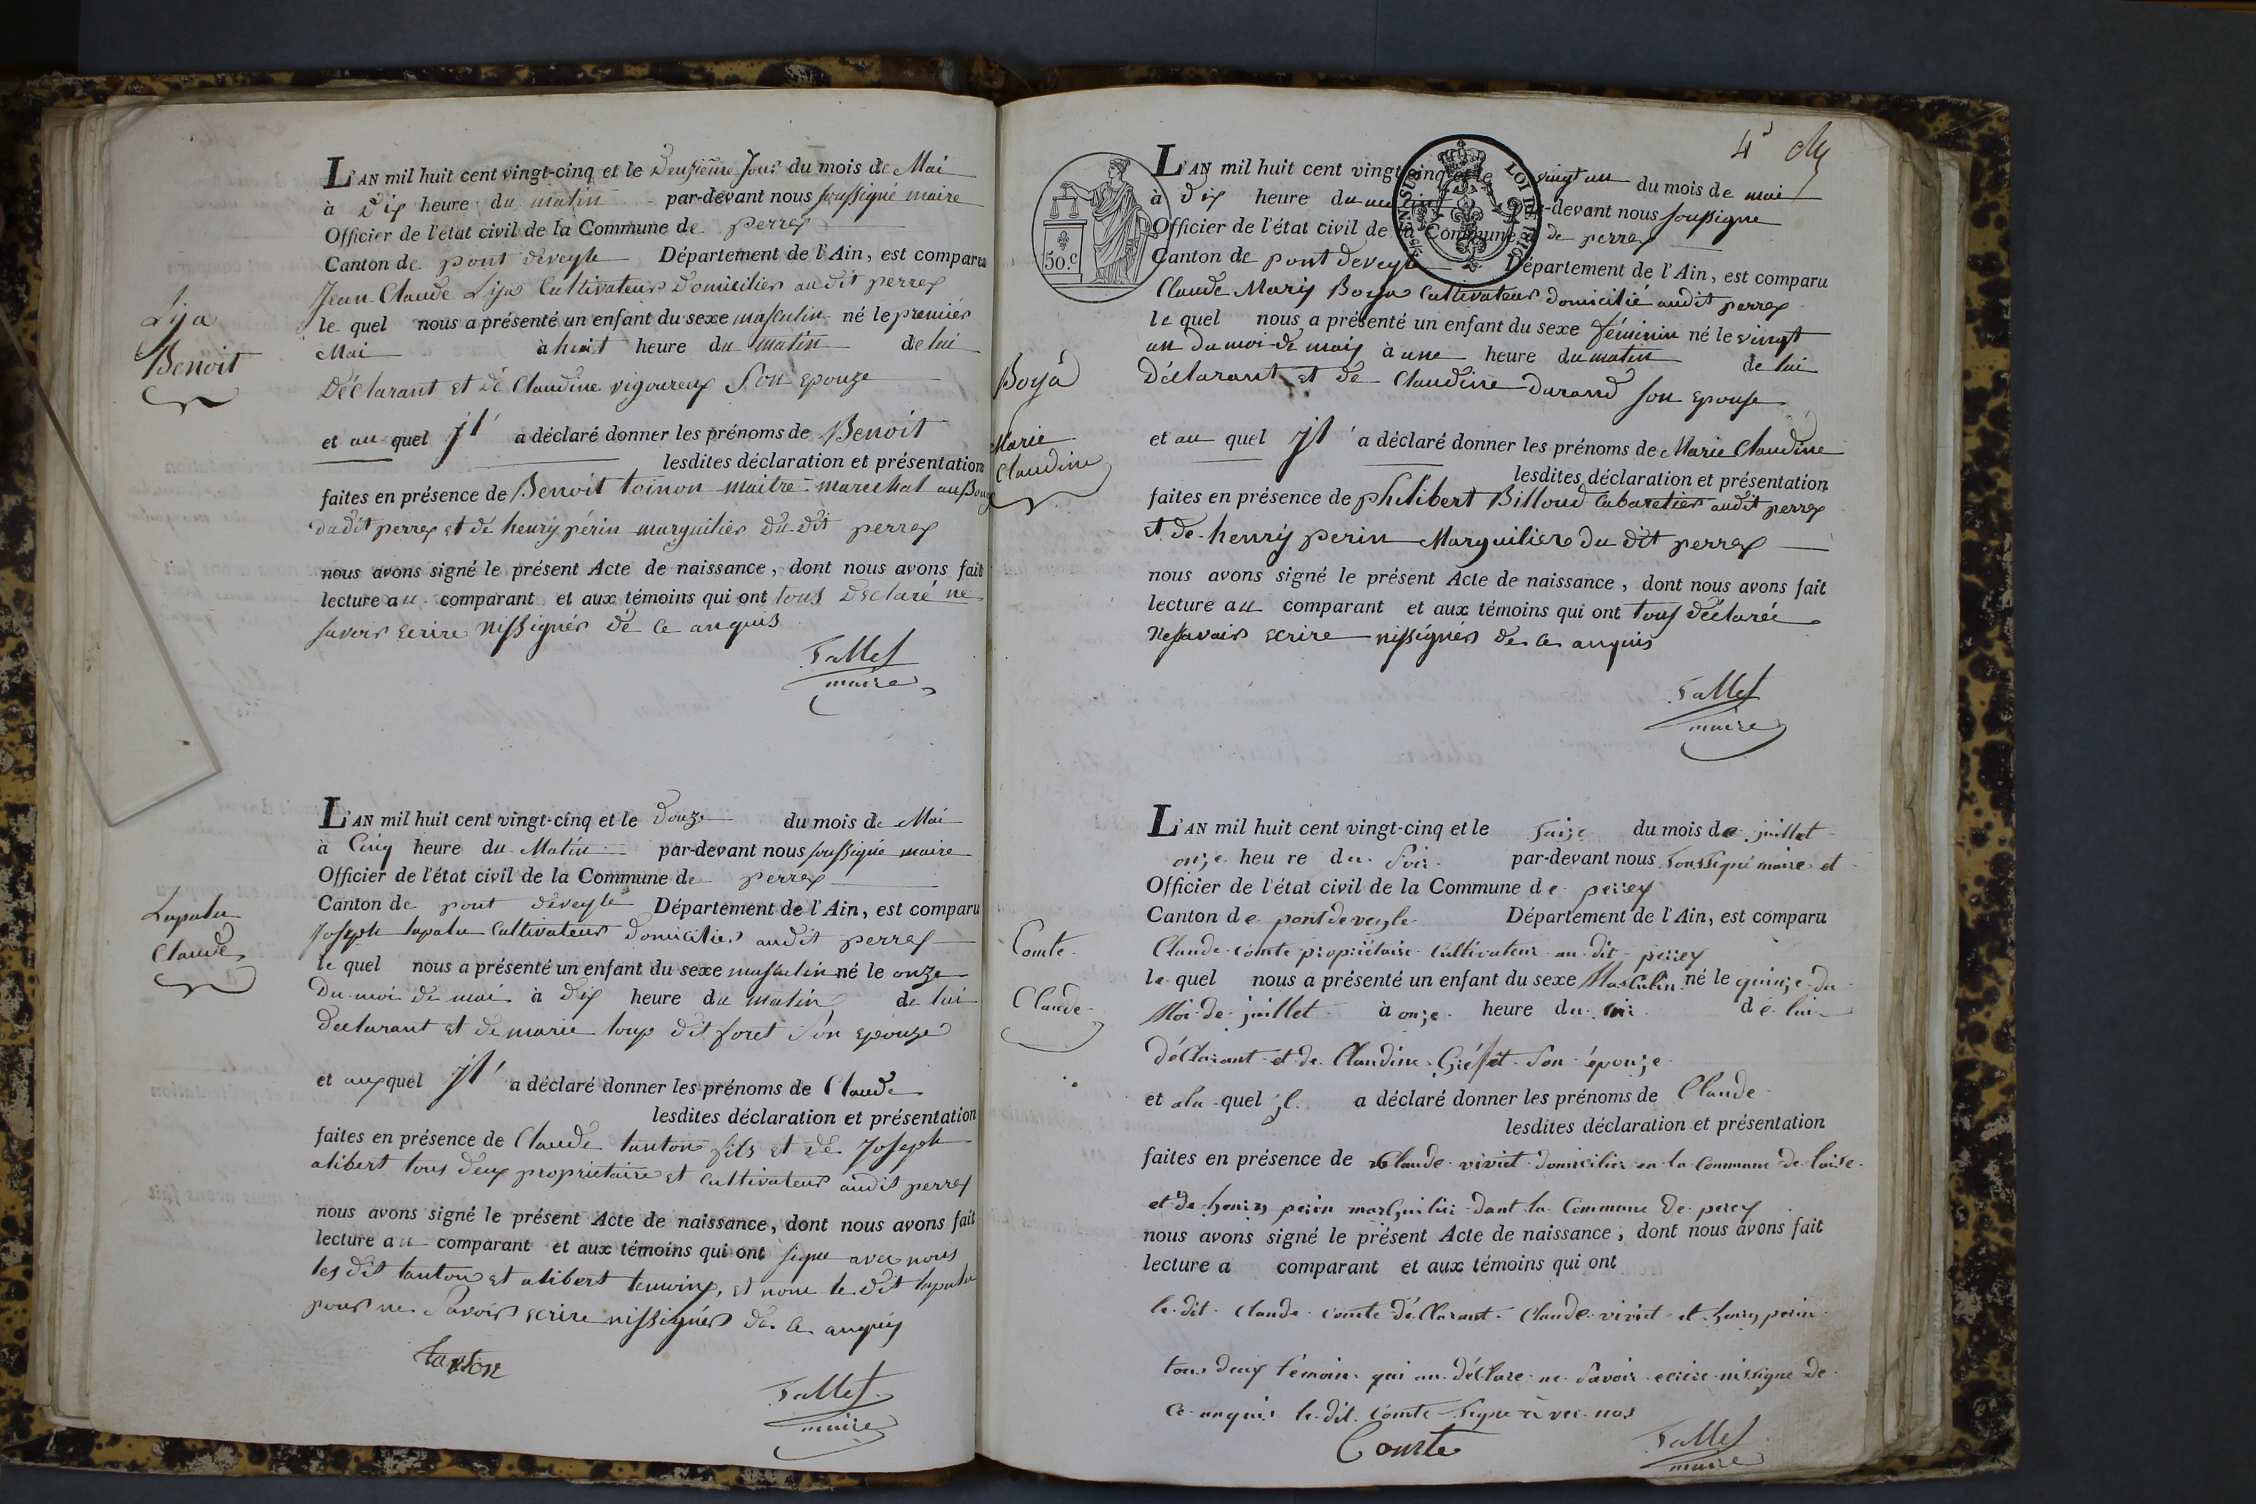 Lija
Benoit
L'AN mil huit cent vingt-cinq et le deuxieme jour du mois de Mai
à dix heure du matin par-devant nous soussigné maire
Officier de l'état civil de la Commune de perrex
Canton de pont deveyle Département de l'Ain, est comparu
Jean Claude Lija Cultivateur domicilier audit perrex
le quel nous a présenté un enfant du sexe masculin né le premier
Mai à huit heure du matin de lui
Déclarant et de Claudine vigoureux son epouze
et au quel jl a déclaré donner les prénoms de Benoit
lesdites déclaration et présentation
faites en présence de Benoit toinon maitre marechal au Bourg
dudit perrex et de henry périn marguilier du dit perrex
nous avons signé le présent Acte de naissance, dont nous avons fait
lecture au comparant et aux témoins qui ont tous déclaré ne
savoir ecrire nissigner de ce anquis
Fallet
maire
Lapalu
Claude
L'AN mil huit cent vingt-cinq et le douze du mois de Mai
à Cinq heure du Matin par-devant nous soussigné maire
Officier de l'état civil de la Commune de perrex
Canton de pont deveyle Département de l'Ain, est comparu
joseph lapalu Cultivateur domicilier audit perrex
le quel nous a présenté un enfant du sexe masculin né le onze
du moi de mai à dix heure du matin de lui
declarant et de marie loup dit foret son epouze
et auxquel jl a déclaré donner les prénoms de Claude
lesdites déclaration et présentation
faites en présence de Claude tanton fils et de Joseph
alibert tous deux proprietaire et Cultivateur audit perrex
nous avons signé le présent Acte de naissance, dont nous avons fait
lecture au comparant et aux témoins qui ont signe avec nous
les dit tanton et alibert temoins, et none le dit lapalu
pour ne savoir ecrire nissigner de ce anquis
tanton
Fallet
maire
4
50.c
LOI DE 1816
L'AN mil huit cent vingt-cinq et le vingt un du mois de mai
à dix heure du matin par-devant nous soussigne
Officier de l'état civil de la Commune de perrex
Canton de pont deveyle Département de l'Ain, est comparu
Claude Mary Boya Cultivateur domicilié audit perrex
le quel nous a présenté un enfant du sexe féminin né le vingt
un du moi de maij à une heure du matin de lui
Déclarant et de Claudine durand son epouse
Boyà
Marie
Claudine
et au quel jl a déclaré donner les prénoms de Marie Claudine
lesdites déclaration et présentation
faites en présence de philibert Billoud Cabaretier audit perrex
et de henry perin Marguilier du dit perrex
nous avons signé le présent Acte de naissance, dont nous avons fait
lecture au comparant et aux témoins qui ont tous déclaréé
ne savoir ecrire nissigner de ce anquis
Fallet
maire
L'AN mil huit cent vingt-cinq et le saize du mois de juillet
onze heu re du soir par-devant nous soussigné maire et
Officier de l'état civil de la Commune de perrex
Canton de pont de veyle Département de l'Ain, est comparu
Claude comte propriétaire cultivateur au dit perrex
le quel nous a présenté un enfant du sexe Masculin né le quinze du
Moi de juillet à onze heure du soir dé lui
Comte
Claude
déclarant et de Claudine Gréfet son épouze
et alu quel jl a déclaré donner les prénoms de Claude
lesdites déclaration et présentation
faites en présence de Claude viviet domicilier en la Commune de laise
et de henry perin marguilier dant la Commune de perex
nous avons signé le présent Acte de naissance, dont nous avons fait
lecture a comparant et aux témoins qui ont
le dit Claude comte déclarant Claude viviet et henry perin
tous deux témoin qui on déclare ne savoir ecrire nissigne de
ce anquis le dit comte signe avec nos
Comte
Fallet
maire